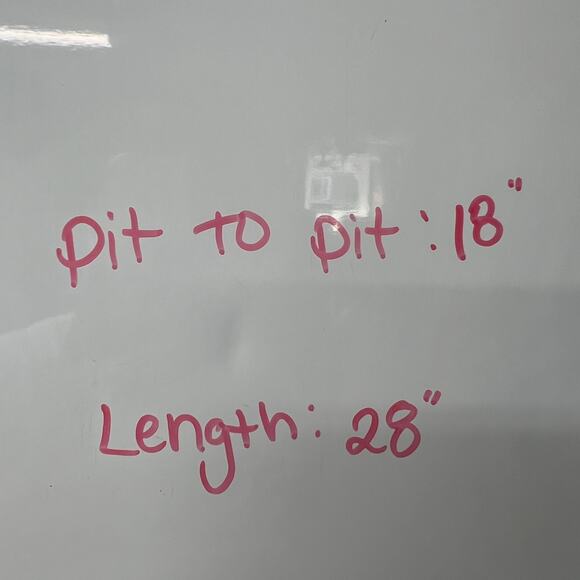 pit to pit : 18"
Length: 28"